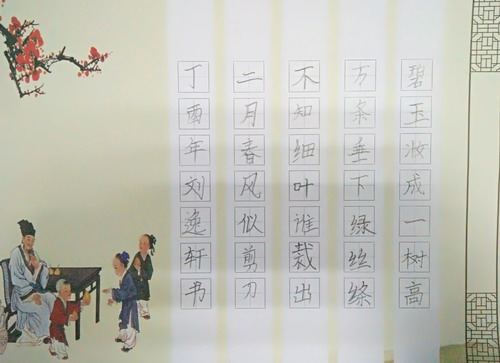 碧玉妆成一树高
万条垂下绿丝绦
不知细叶谁裁出
二月春风似剪刀
丁酉年刘逸轩书